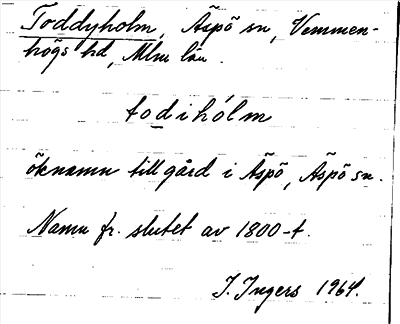 Toddyholm, Äspö sn, Vemmen-
högs hd, Mlm län.
todihólm
öknamn till gård i Äspö, Äspö sn.
Namn fr. slutet av 1800-t.
I. Ingers 1964.